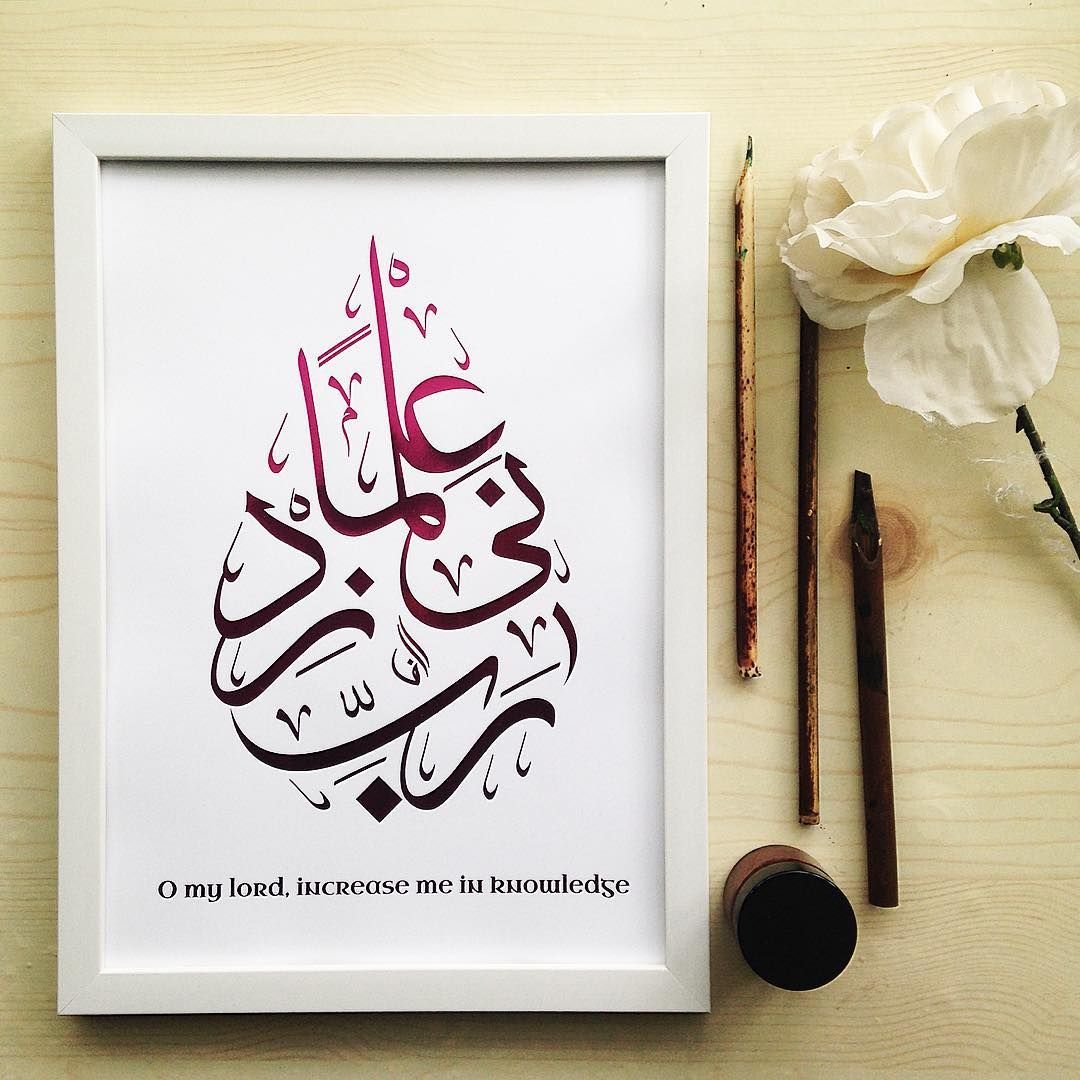 رَبِّ زِدْنِي عِلْمًا
O my lord, increase me in knowledge